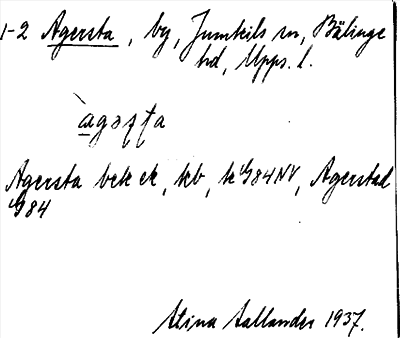 1-2 Agersta, by, Jumkils sn, Bälinge
hd, Upps. l.
Agersta bek ek, kb, k 4/9 84 NV, Agerstad
4/9 84
Stina Sallander 1937.